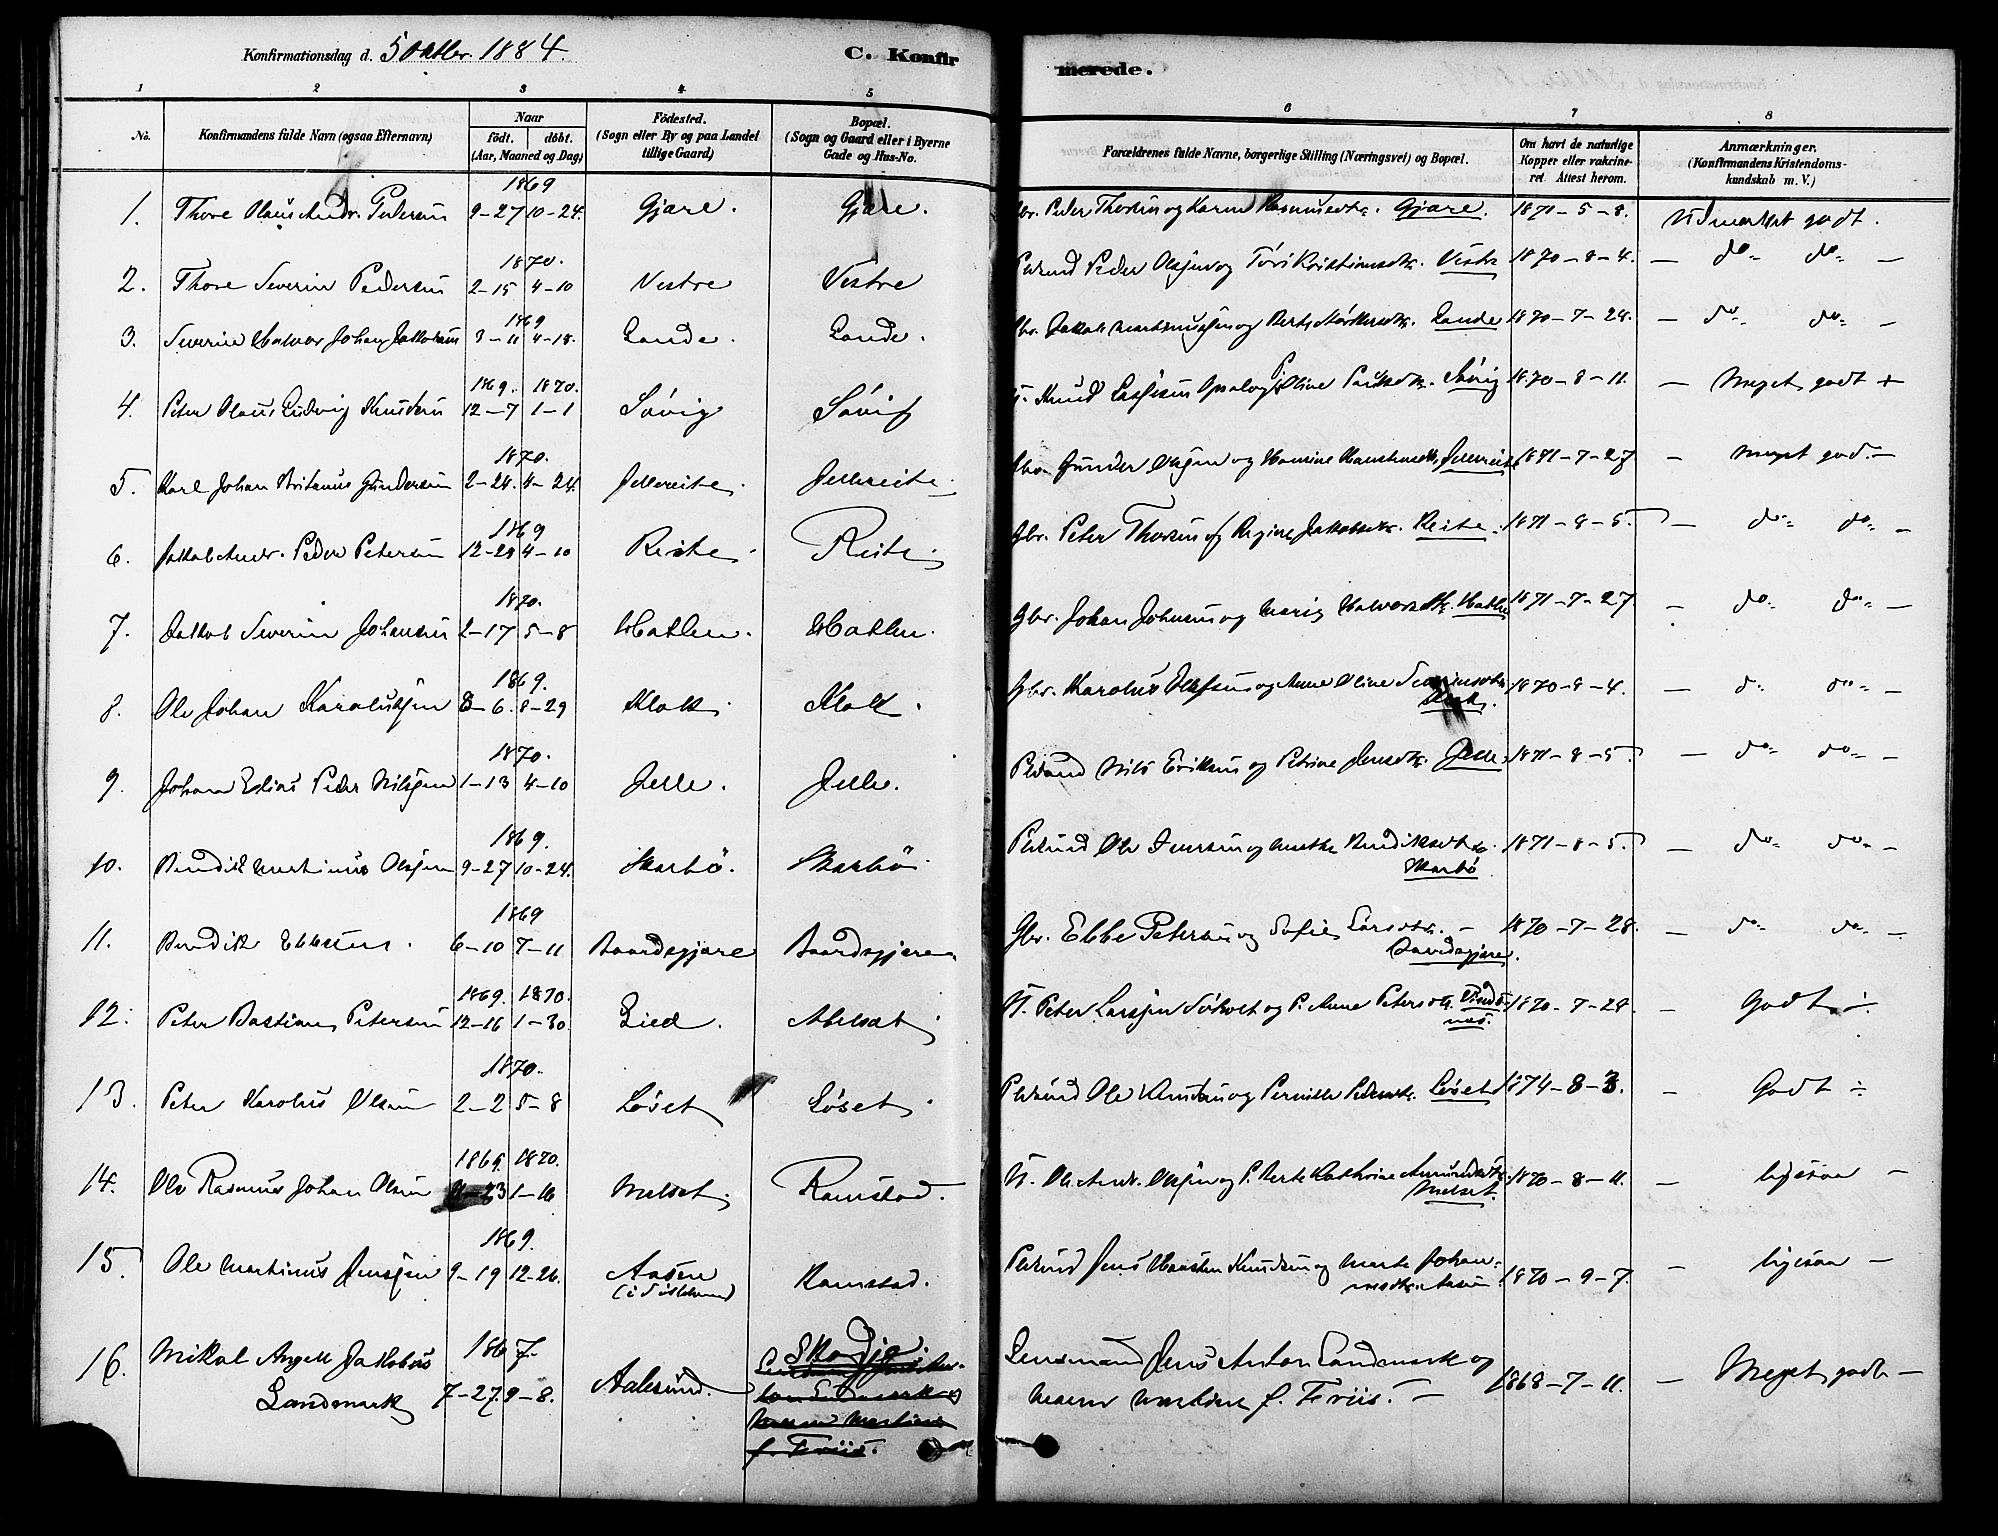 Konfirmationsdag d. 5 Oktbr. 1884. C. Konfirmerede.
1 2 3 4 5 6 7 8
No. Konfirmandens fulde Navn (ogsaa Efternavn) Naar født. døbt. (Aar, Maaned og Dag) Fødested. (Sogn eller By og paa Landet tillige Gaard) Bopæl. (Sogn og Gaard eller i Byerne Gade og Hus-No. Forældrenes fulde Navne, borgerlige Stilling (Næringsvei) og Bopæl. Om havt de naturlige Kopper eller vakcineret. Attest herom. Anmærkninger. (Konfirmandens Kristendomskundskab m. V.)
1. Thore Olaus Andr. Pedersen 1869 9-27 10-24. Gjære. Gjære. Gbr. Peder Thorsen og Karen Rasmusdtr. Gjære. 1871-5-8. Udmærket godt.
2. Thore Severin Pedersen 1870. 2-15 4-10 Vestre Vestre Pladsmd Peder Olsen og Kristiansdtr. Vestre 1870-8-4. - do - do -
3. Severin Halvor Johan Jakobsen 1869 3-11 4-18. Lande. Lande. Gbr. Jakob Martinussen og Berte Lande 1870-7-28. - do - do -
4. Peter Olaus Ludvig Knudsen 1869. 1870. 12-7 1-1 Søvig Søvig U. Knud Larsen og Oline Søvig 1870-8-11. - Meget godt +
5. Karl Johan Gundersen 1870. 2-24. 4-24. Jellereite. Jellereite. Gbr. Gunder Olsen og Hansine Jellereite 1871-7-27 - Meget god. -
6. Jakob Andr. Peder Petersen 1869 12-28 4-10 Reite. Reite. Gbr. Peter Thorsen og Regine Jakobsdtr. Reite. 1871-8-5. - do - do -
7. Jakob Severin Johansen 1870. 2-17 5-8 Hatlen. Hatlen. Gbr. Johan Johnsen og Marie Halvorsdtr. Hatlen 1871-7-27. - do - do -
8. Ole Johan Karolussen 1869. 8-6. 8-29 Klok. Klok. Gbr. Karolus Olsen og Anne Oline Severinsdtr. Klok. 1870-8-4. - do - do -
9. Johan Elias Peder Nilsen 1870. 1-13 4-10 Jelle. Jelle. Pladsmd Nils Eriksen og Petrine Jensdtr. Jelle. 1871-8-5. - do - do -
10. Bendik Martinus Olsen 1869. 9-27 10-24. Skarbø. Skarbø. Pladsmd Ole Iversen og Marthe Bendiksdtr. Skarbø 1871-8-5. - do - do -
11. Bendik Ebbesen. 1869 6-10 7-11 Baardsgjære Baardsgjære Gbr. Ebbe Petersen og Sofie Larsdtr. - Baardsgjære. 1870-7-28. - do - do -
12. Peter Bastian Petersen 1869. 1870. 12-16 1-30. Lied. Abelset. U. Peter Larsen Søholt og P. Anne Petersdtr. 1870-7-28. - Godt ÷
13. Peter Karolus Olsen 1870. 2-2 5-8 Løset Løset. Pladsmd Ole Knudsen og Pernille Pedersdtr. Løset 1874-8-3. - Godt ÷
14. Ole Rasmus Johan Olsen 1869. 1870. 11-23 1-16 Melset. Ramstad. U. Ole Andr. Olsen og P. Berte Kathrine Amundsdtr. Melset. 1870-8-11. - ligesaa -
15. Ole Martinus Jensen 1869. 9-19 12-26. Aasen Ramstad. Pladsmd Jens Knudsen og Marte Johannesdtr. Aasen 1870-9-7. - ligesaa -
16. Mikal Angell Jakobus Landmark 1867. 7-27. 9-8. Aalesund. Skodje. Lensmand Jens Anton Landmark og Maren Martine f. Friis. - 1868-7-11. - Meget godt -
f. Friis.